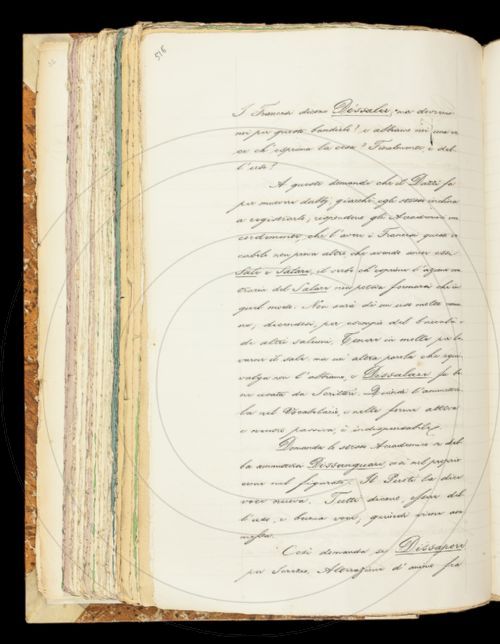 516
I Francesi dicono Dessaler, ma dovremo
noi per questo bandirlo? e abbiamo noi una vo
ce ch'esprima la cosa? Finalmente, è del
l'uso?
A queste domande che il Dazzi fa
per muovere dubbj, giacchè egli stesso inclina
a registrarlo, rispondono gli Accademici con
cordemente, che l'aver i Francesi questo vo
cabolo non prova altro che avendo ancor essi
Sale e Salare, il verbo ch'esprime l'azione con
traria del Salare non poteva formarsi che in
quel modo. Non sarà di un uso molto comu
ne, dicendosi, per esempio del baccalà e
di altri salumi, Tenere in molle per le
varne il sale ma noi altra parola che equi
valga non l'abbiamo, e Dissalare fu be
ne usato da Scrittori. Quindi l'ammetter
la nel Vocabolario, e nella forma attiva
e neutro passiva, è indispensabile.
Domanda lo stesso Accademico se deb
ba ammettersi Dissanguare, sia nel proprio
come nel figurato. Il Parenti la dice
voce nuova. Tutti dicono, essere del
l'uso, e buona voce, quindi viene am
messa.
Così domanda se Dissapore
per Screzio, Alterazione d'animo fra